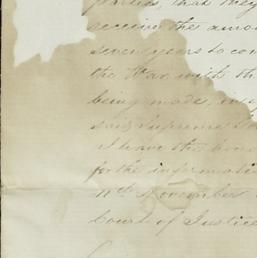 parties, that they
seven years to com
the War with th
being made, in
said Supreme
I leave the hono
for the informati
11th November
Court of Justice